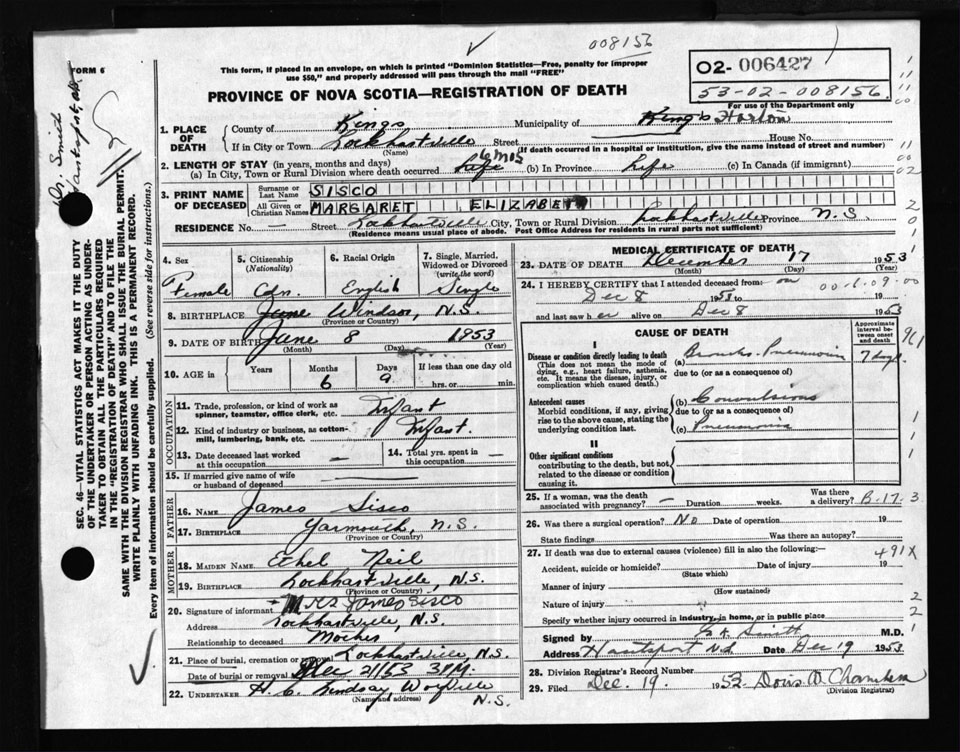 008156
FORM 6
This form, if placed in an envelope, on which is printed "Dominion Statistics—Free, penalty for improper
use $50," and properly addressed will pass through the mail "FREE"
02- 006427
53-02-008156.
For use of the Department only
PROVINCE OF NOVA SCOTIA—REGISTRATION OF DEATH
Dr. Smith
Hantsport, N.S.
SEC. 46—VITAL STATISTICS ACT MAKES IT THE DUTY
OF THE UNDERTAKER OR PERSON ACTING AS UNDER-
TAKER TO OBTAIN ALL THE PARTICULARS REQUIRED
IN THE "REGISTRATION OF DEATH" AND TO FILE THE
SAME WITH THE DIVISION REGISTRAR WHO SHALL ISSUE THE BURIAL PERMIT.
WRITE PLAINLY WITH UNFADING INK. THIS IS A PERMANENT RECORD.
Every item of information should be carefully supplied. (See reverse side for instructions.)
1. PLACE OF DEATH
County of Kings Municipality of King's Horton
If in City or Town Lockhartville Street House No.
(Name) (If death occurred in a hospital or institution, give the name instead of street and number)
2. LENGTH OF STAY (in years, months and days)
(a) In City, Town or Rural Division where death occurred 6 mos (b) In Province Life (c) In Canada (if immigrant)
3. PRINT NAME OF DECEASED
Surname or Last Name SISCO
All Given or Christian Names MARGARET ELIZABETH
RESIDENCE No. — Street Lockhartville City, Town or Rural Division Lockhartville Province N.S.
(Residence means usual place of abode. Post Office Address for residents in rural parts not sufficient)
4. Sex
Female
5. Citizenship (Nationality)
Cdn.
6. Racial Origin
English
7. Single, Married, Widowed or Divorced (write the word)
Single
8. BIRTHPLACE June Windsor, N.S.
(Province or Country)
9. DATE OF BIRTH June 8 1953
(Month) (Day) (Year)
10. AGE in Years Months Days If less than one day
6 9 hrs. or min.
OCCUPATION
11. Trade, profession, or kind of work as
spinner, teamster, office clerk, etc. Infant
12. Kind of industry or business, as cotton-
mill, lumbering, bank, etc. Infant.
13. Date deceased last worked
at this occupation —
14. Total yrs. spent in
this occupation —
15. If married give name of wife
or husband of deceased —
FATHER
16. NAME James Sisco
17. BIRTHPLACE Yarmouth, N.S.
(Province or Country)
MOTHER
18. MAIDEN NAME Ethel Neil
19. BIRTHPLACE Lockhartville, N.S.
(Province or Country)
20. Signature of informant Mrs James Sisco
Address Lockhartville, N.S.
Relationship to deceased Mother
21. Place of burial, cremation or removal Lockhartville, N.S.
Date of burial or removal Dec 21/53 3 P.M.
22. UNDERTAKER H. C. Lindsay, Wolfville
(Name and address) N.S.
MEDICAL CERTIFICATE OF DEATH
23. DATE OF DEATH December 17 1953
(Month) (Day) (Year)
24. I HEREBY CERTIFY that I attended deceased from: on
Dec 8 1953 to 19
and last saw her alive on Dec 8 1953
CAUSE OF DEATH
Approximate interval between onset and death
I
Disease or condition directly leading to death
(This does not mean the mode of
dying, e.g., heart failure, asthenia,
etc. It means the disease, injury, or
complication which caused death.)
(a) Broncho-Pneumonia 7 days
due to (or as a consequence of)
Antecedent causes
Morbid conditions, if any, giving
rise to the above cause, stating the
underlying condition last.
(b) Convulsions
due to (or as a consequence of)
(c) Pneumonia
II
Other significant conditions
contributing to the death, but not
related to the disease or condition
causing it.
25. If a woman, was the death
associated with pregnancy? — Duration weeks. Was there
a delivery? B.17.3
26. Was there a surgical operation? No Date of operation 19
State findings Was there an autopsy?
27. If death was due to external causes (violence) fill in also the following:— 491X
Accident, suicide or homicide? Date of injury 19
(State which)
Manner of injury
(How sustained)
Nature of injury
Specify whether injury occurred in industry, in home, or in public place
Signed by Smith M.D.
Address Hantsport N.S. Date Dec 19 1953
28. Division Registrar's Record Number
29. Filed Dec. 19. 1953 Doris D. Chambers
(Division Registrar)